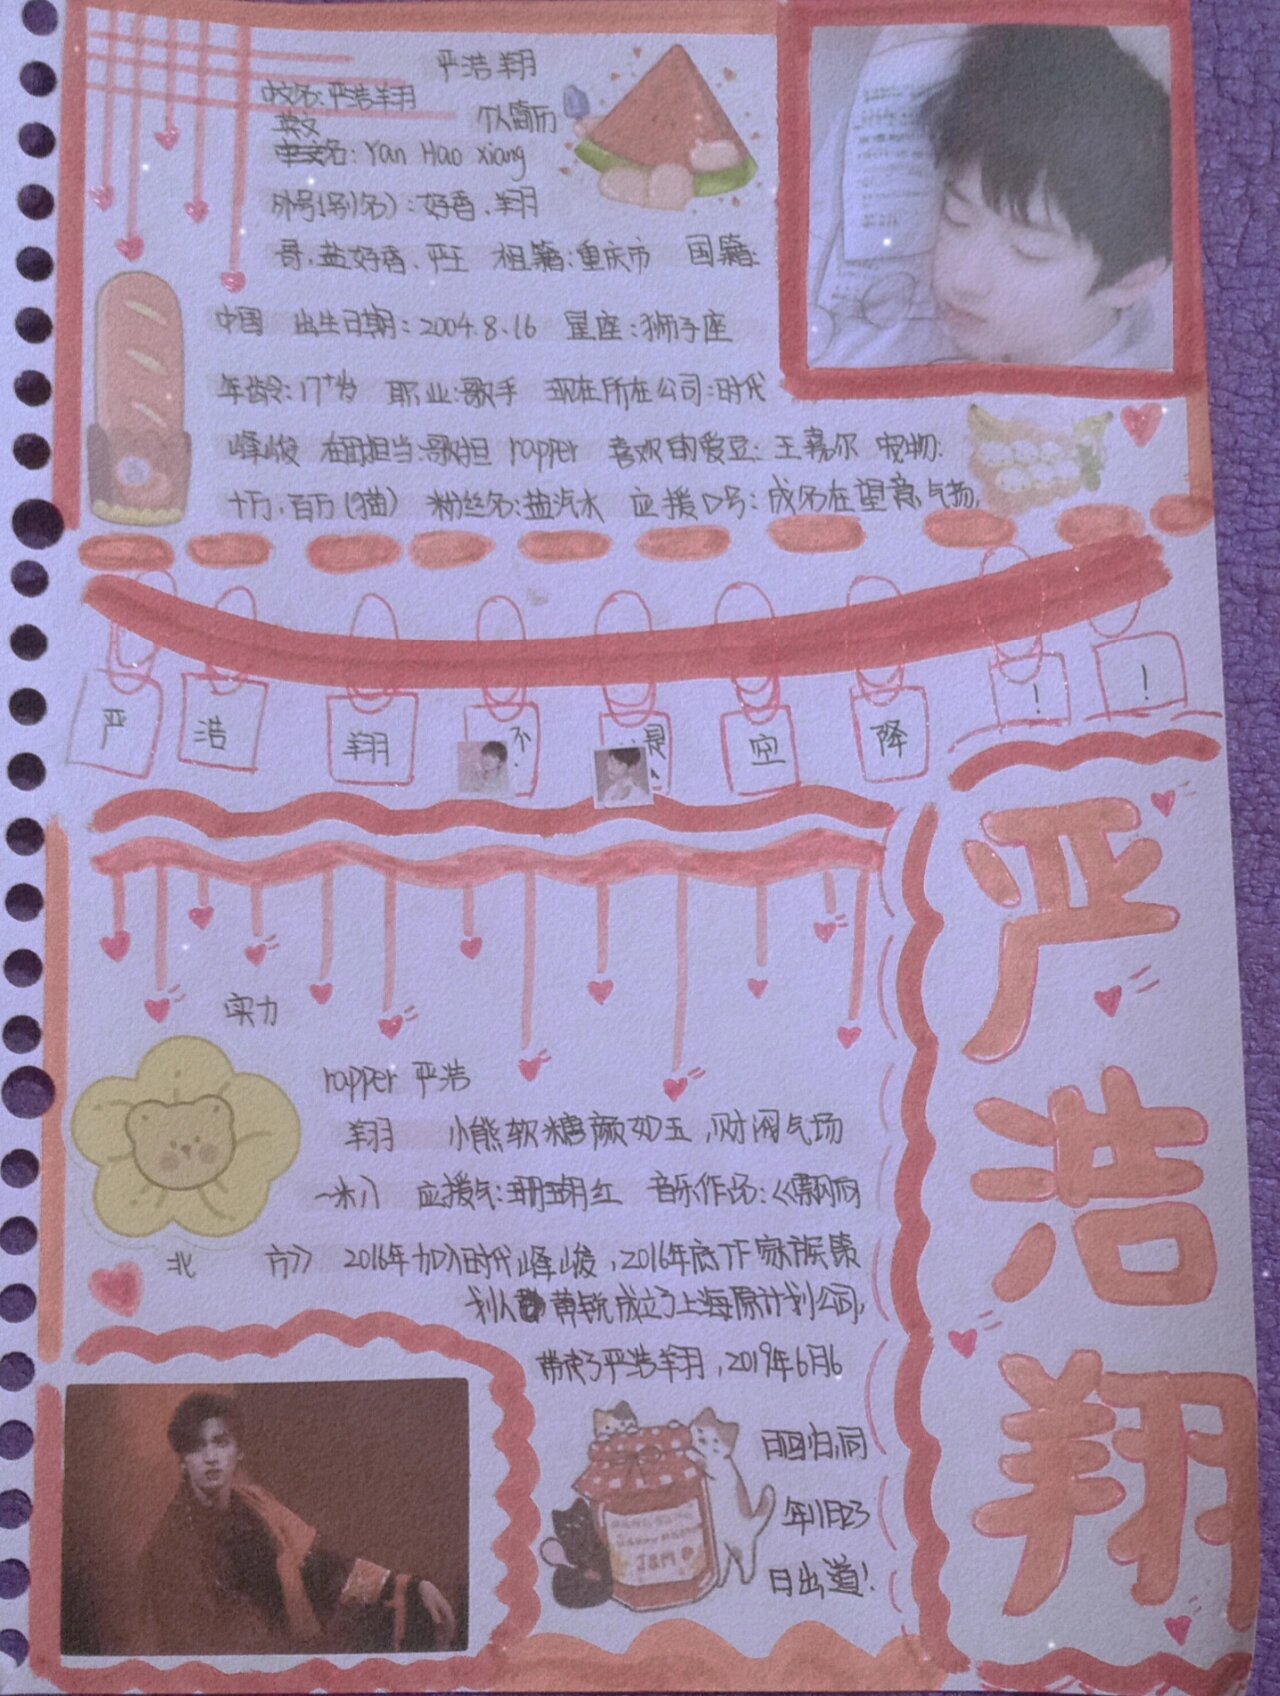 严浩翔
个人简历
中文名:严浩翔
英文名:Yan Hao xiang
外号(别名):好香、翔
哥、盐好香、严王 祖籍:重庆市 国籍:
中国 出生日期:2004.8.16 星座:狮子座
年龄:17+岁 职业:歌手 现在所在公司:时代
峰峻 在团担当:歌担 rapper 喜欢的爱豆:王嘉尔 宠物:
十万、百万(猫) 粉丝名:盐汽水 应援口号:成名在望意气扬,
严 浩 翔 不 是 空 降 ! !
实力
rapper 严浩
翔 小熊软糖颜如玉,财阀气场
一米八 应援色:珊瑚红 音乐作品:《飘雨
北 方》 2016年加入时代峰峻,2016年底TF家族策
划人黄锐成立了上海原计划公司,
带走了严浩翔,2019年6月6
日回归,同
年11日23
日出道!
JAM
严
浩
翔